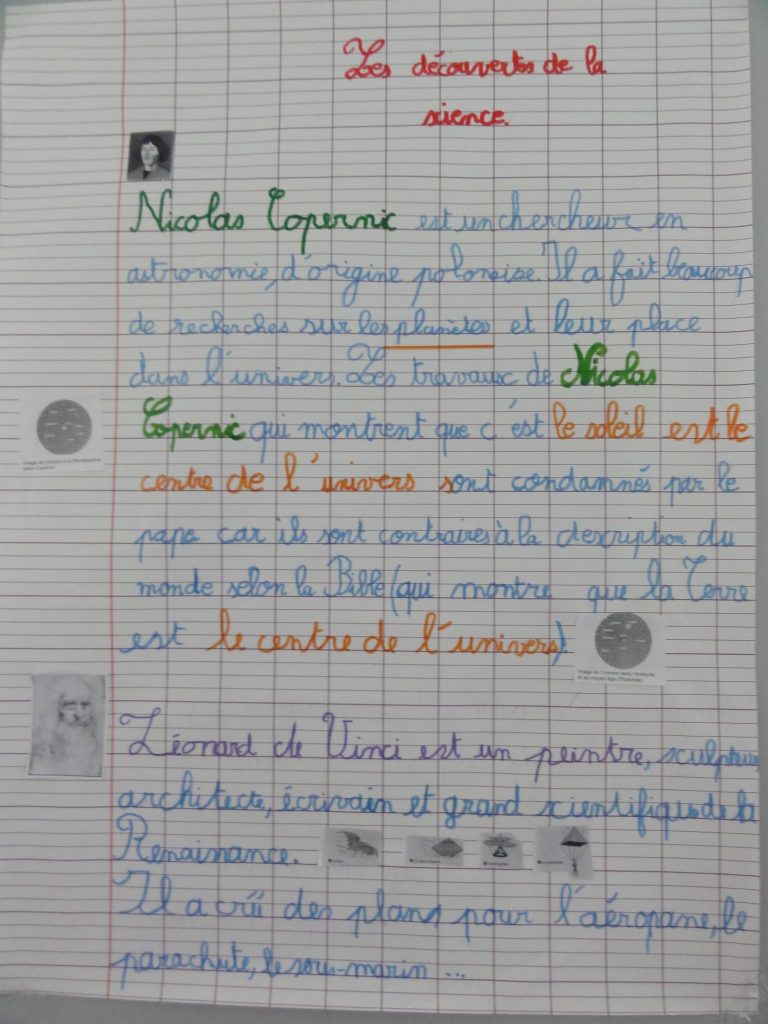 Les découvertes de la
science.
Nicolas Copernic est un chercheur en
astronomie, d'origine polonaise. Il a fait beaucoup
de recherches sur les planètes et leur place
dans l'univers. Les travaux de Nicolas
Copernic qui montrent que c'est le soleil est le
centre de l'univers sont condamnés par le
pape car ils sont contraires à la description du
monde selon la Bible (qui montre que la Terre
est le centre de l'univers).
Image de l'univers à la Renaissance
selon Copernic
Image de l'univers dans l'antiquité
et au moyen âge (Ptolémée)
Léonard de Vinci est un peintre, sculpteur,
architecte, écrivain et grand scientifique de la
Renaissance.
Il a créé des plans pour l'aéropane, le
parachute, le sous-marin ...